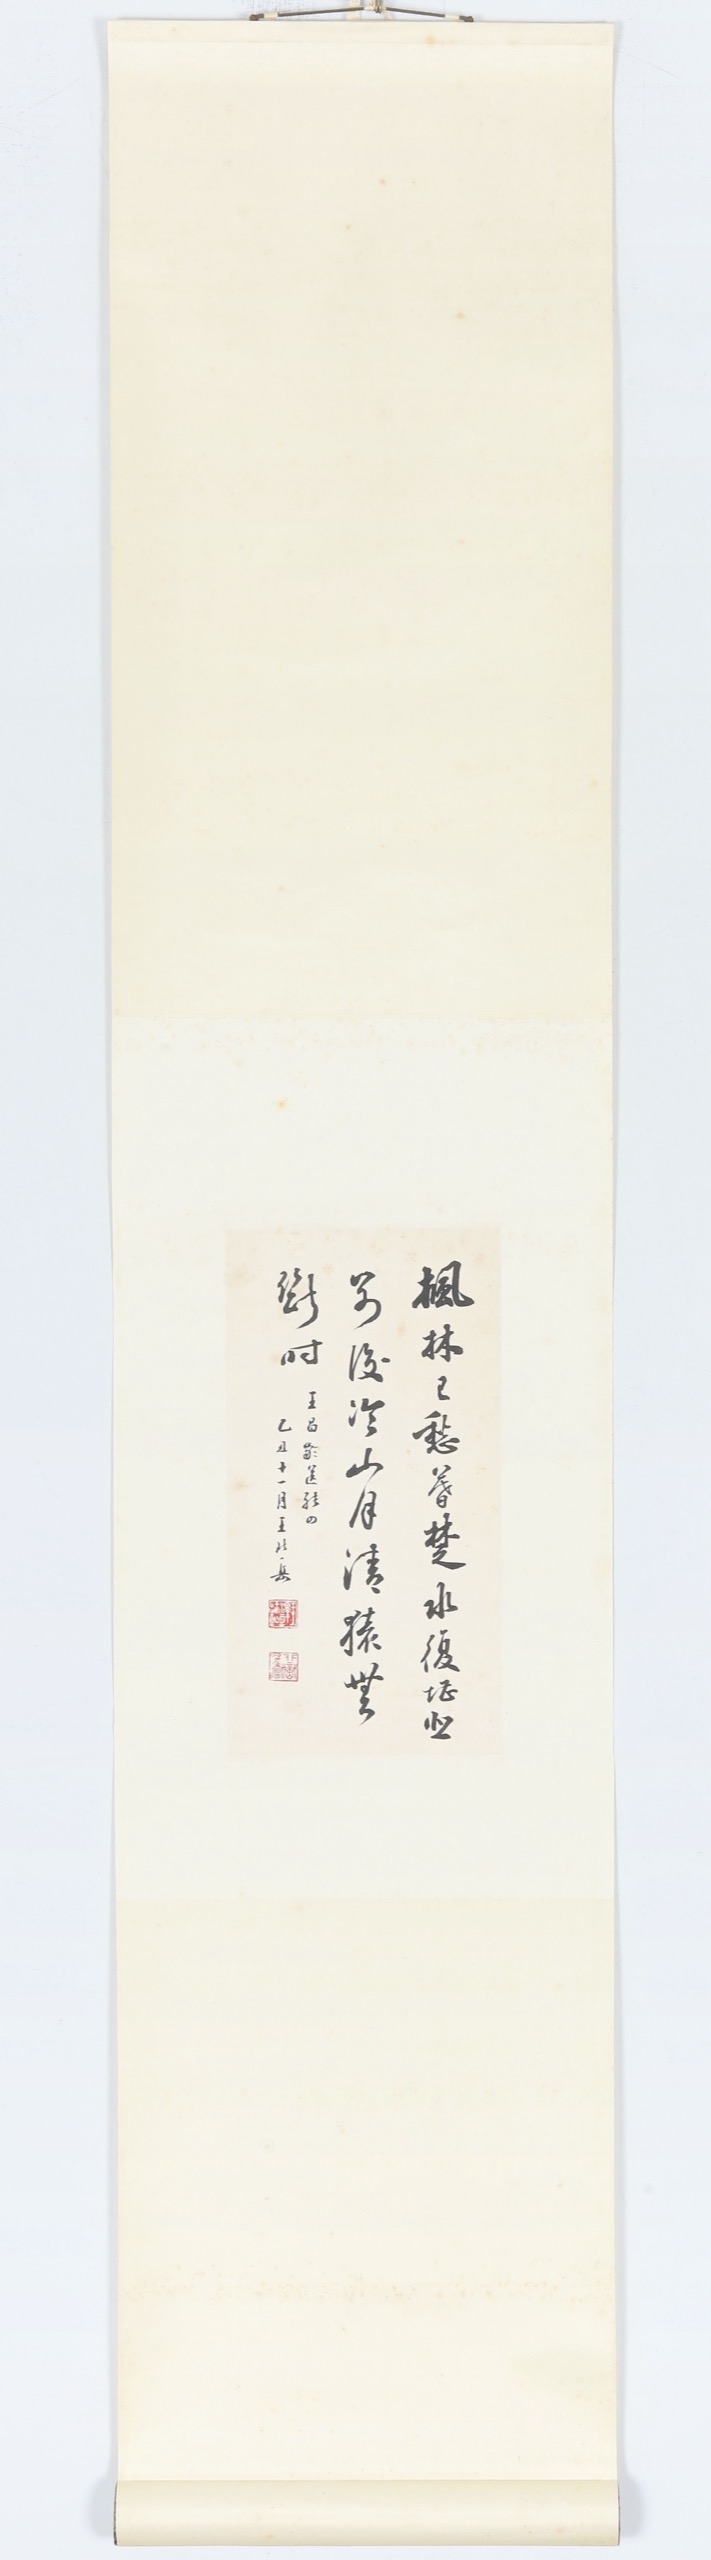 楓林已愁暮楚水復堪悲
別後冷山月清猿無
斷時
王昌齡送張四
乙丑十一月王北岳